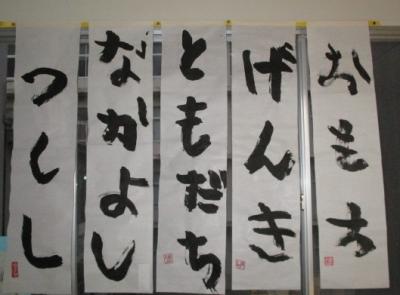 おもち
げんき
ともだち
なかよし
つくし